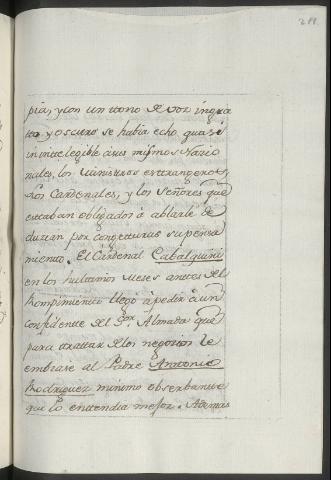 211
pia, y con un ttono de voz ingra
tta y oscuro se havia echo quasi
ininttelegible a sus mismos Nazio
nales, los Ministros extrangeros,
los Cardenales, y los Señores que
esttaban obligados à ablarle de
duzian por congetturas su pensa
miento. El Cardenal Cabalquini
en los hultimos Meses anttes del
Rompimiento llegò à pedir à un
confidente del S.or Almada que
para ttrattar de los negocios le
embiase al Padre Antonio
Rodriguez minimo obserbantte
que lo enttendia mejor. Ademas